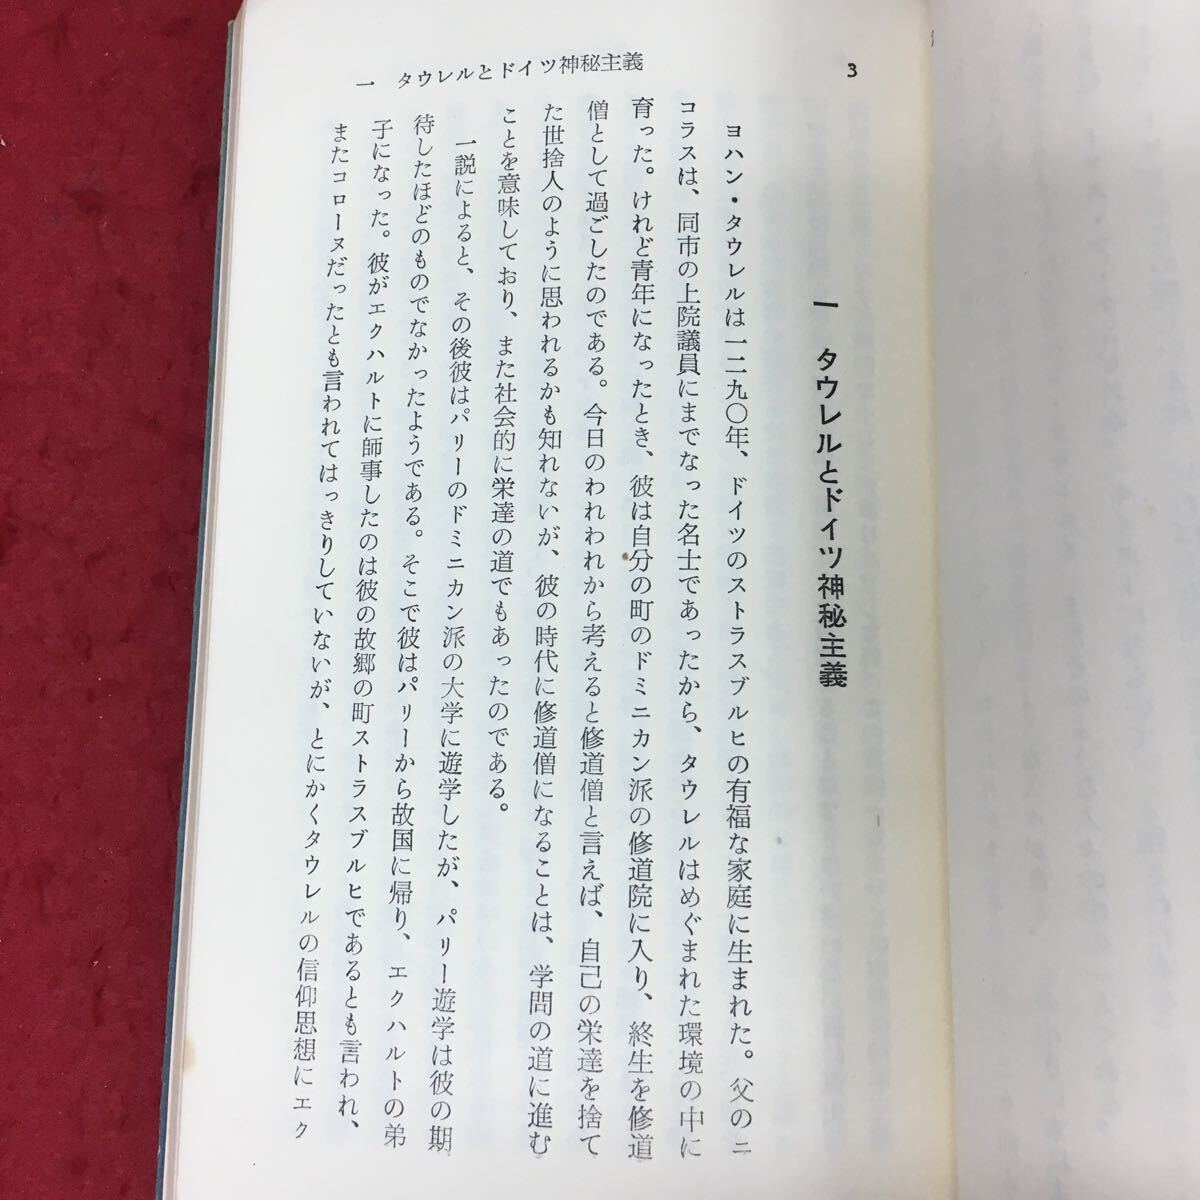 一　タウレルとドイツ神秘主義
3
一　タウレルとドイツ神秘主義
ヨハン・タウレルは一二九〇年、ドイツのストラスブルヒの有福な家庭に生まれた。父のニ
コラスは、同市の上院議員にまでなった名士であったから、タウレルはめぐまれた環境の中に
育った。けれど青年になったとき、彼は自分の町のドミニカン派の修道院に入り、終生を修道
僧として過ごしたのである。今日のわれわれから考えると修道僧と言えば、自己の栄達を捨て
た世捨人のように思われるかも知れないが、彼の時代に修道僧になることは、学問の道に進む
ことを意味しており、また社会的に栄達の道でもあったのである。
一説によると、その後彼はパリーのドミニカン派の大学に遊学したが、パリー遊学は彼の期
待したほどのものでなかったようである。そこで彼はパリーから故国に帰り、エクハルトの弟
子になった。彼がエクハルトに師事したのは彼の故郷の町ストラスブルヒであるとも言われ、
またコローヌだったとも言われてはっきりしていないが、とにかくタウレルの信仰思想にエク